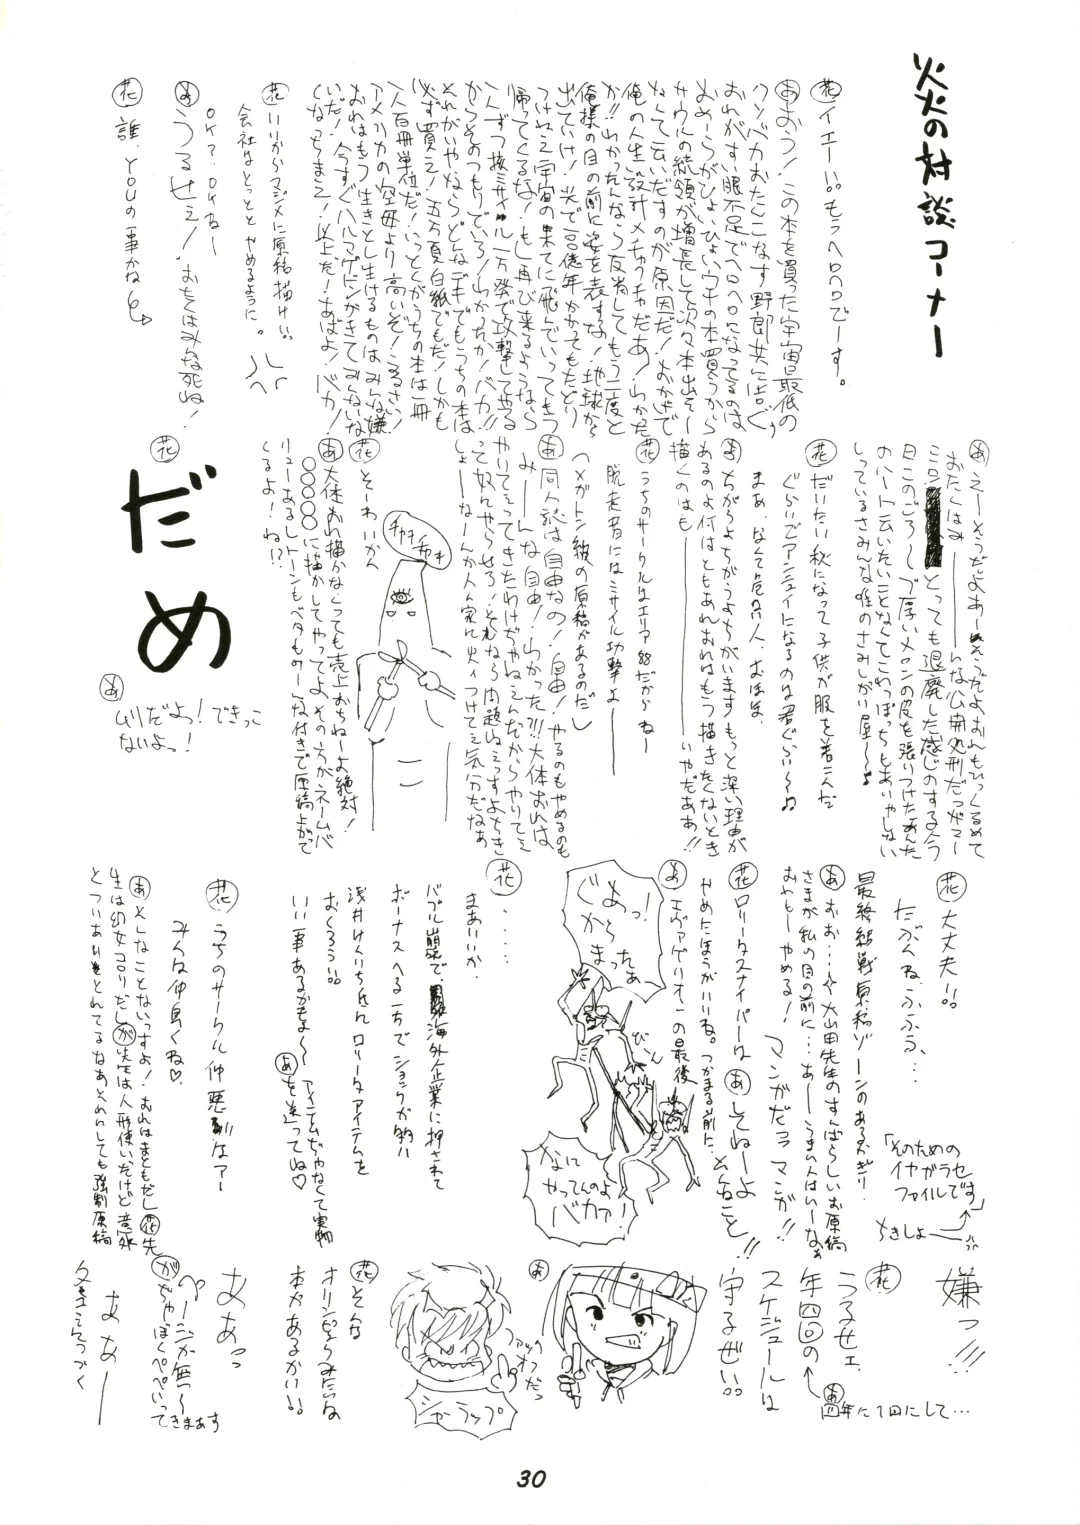 炎の対談コーナー
花 イエーい。もうヘロヘロでーす。
あ おう!この本を買った宇宙最低の
クソバカおたんこなす野郎共に告ぐぅ
おれがすい眠不足でヘロヘロになってるのは
おめーらがひょいひょいウチの本買うから
サークルの統領が増長して次々本出そー
なんて云いだすのが原因だ!おかげで
俺の人生設計メチャクチャだあ!わかった
か!!わかったんなら反省してもう二度と
俺様の目の前に姿を表すな!地球から
出ていけ!光で一百億年かかってもたどり
つけねェ宇宙の果てに飛んでいってきっ
帰ってくるな!もし再び来るようなら
一人ずつ核ミサイル一万発で攻撃してやる
からそのつもりでいろ!わかったか!バカ!!
それがいやならどんなデキでもうちの本は
必ず買え!五万頁白紙でもだ!しかも
一人百冊単位だ!いっとくがうちの本は一冊
アメリカの空母より高いぞ!うるさい!
おれはもう生きとし生けるものはみんな嫌
いだ!今すぐハルマゲドンがきてみんないな
くなっちまえ!以上だ!あばよ!バカ!
花 いいからマジメに原稿描けい。
会社はとっとと やめるように。
OK?.OKねー
あ うるせェ!おたくはみんな死ぬ!
花 誰、YOUの事かね
あ えーそうだよあー そうだよおれもひっくるめて
おたくはみーーーんな公開処刑だっがマー
ミロ とっても退廃した感じのするう
日このごろーブ厚いメロンの皮を張りつけたあんた
のハートに云いたいことなくてこわっぽっちもありゃしない
しっているさみんな唯のさみしがい屋~♪
花 だいたい秋になって子供が服を着こんだ
ぐらいでアンニュイになるのは君ぐらい~♪
まあ、なくて危日人、おほほ、
あ ちがうよちがうよちがいますもっと深い理由が
あるのよ何はともあれおれはもう描きたくないとき
描くのはも――――いやだああ!!
花 うちのサークルはエリア88だから ねー
脱走者にはミサイル功撃よ――
ヘメガトン級の原稿があるのだし
あ 同人誌は自由なの!自由!やるのもやめるのも
み―んな自由!わかった?!!大体おれは
やりてェってきたわけぢゃねェんだからやりてェ
って奴んやらせろ!それなら問題ねェっすよちき
しょーなーんか人ん家に火ィつけてェ気分だなあ
花 そーわいかん
あ 大体おれ描かなくっても売上おちねーよ絶対!
○○○○○に描かしてやってよその方がネームバ
リューあるしトーンもベタものーこな付きで原稿上がって
くるよ!ね!?
チョキチョキ
花 だめ
あ ムリだよっ!できっこ
ないよっ!
花 大丈夫!!
たぶんね、ふふう、…
最終結戦原稿ゾーンのあるかぎり、
「そのための
イヤガラセ
ファイルです」
ちきしょ
あ おお…☆大山田先生のすんばらしいお原稿
さまが私の目の前に…あーうまい人はいーなぁ
おれもーやめる!マンガだヨ マンガ!!
花 ロリータスナイパーは あ してねーよ
やめたほうがいいね。つかまる前に、んなこと!!
あ エヴァゲリオンの最後
あっ!
ぐわら
まったぁ
びーん
なに
やってんのよ
バカァ!
花 ……
まあいいか、
バブル崩壊で 海外企業に押されて
ボーナスへる一ちでショックが的!!
浅井けんいち氏にロリータアイテムを
おくろう!!
いい事あるかもよ~ アイテムぢゃなくて実物
あ を送ってね♡
花 うちのサークル仲悪いなアー
みんな仲良くね♡、
あ そしなことないっすよ!おれはまともだし花先
生は幼女コロリだしが先生は人形使いだけど意外
とつい
嫌っ!!
花 うるせェ
年四回の
スケジュールは
守るぜい。。
あ 四年に1回にして…
あ
ファッ
オフだっ
シャーラップ
花 そんな
オリンピックみたいな
本があるかい!!
ああっ
が ページが無~
ぢゃーぼくペペいって
きまぁす
ああー
30